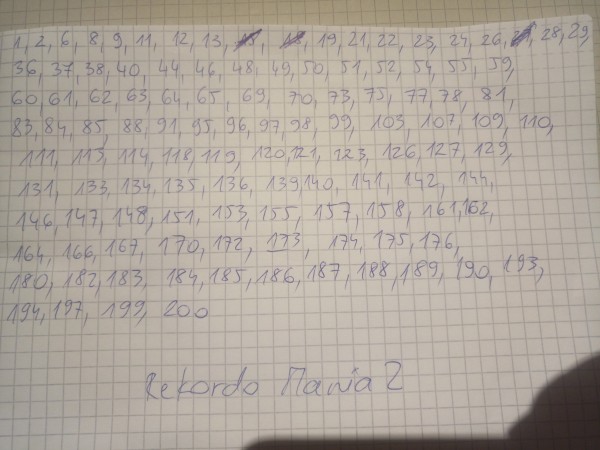 1, 2, 6, 8, 9, 11, 12, 13, 19, 21, 22, 23, 24, 26, 28, 29,
36, 37, 38, 40, 44, 46, 48, 49, 50, 51, 52, 54, 55, 59,
60, 61, 62, 63, 64, 65, 69, 70, 73, 75, 77, 78, 81,
83, 84, 85, 88, 91, 95, 96, 97, 98, 99, 103, 107, 109, 110,
111, 113, 114, 118, 119, 120, 121, 123, 126, 127, 129,
131, 133, 134, 135, 136, 139, 140, 141, 142, 144,
146, 147, 148, 151, 153, 155, 157, 158, 161, 162,
164, 166, 167, 170, 172, 173, 174, 175, 176,
180, 182, 183, 184, 185, 186, 187, 188, 189, 190, 193,
194, 197, 199, 200
Rekordo Mania 2